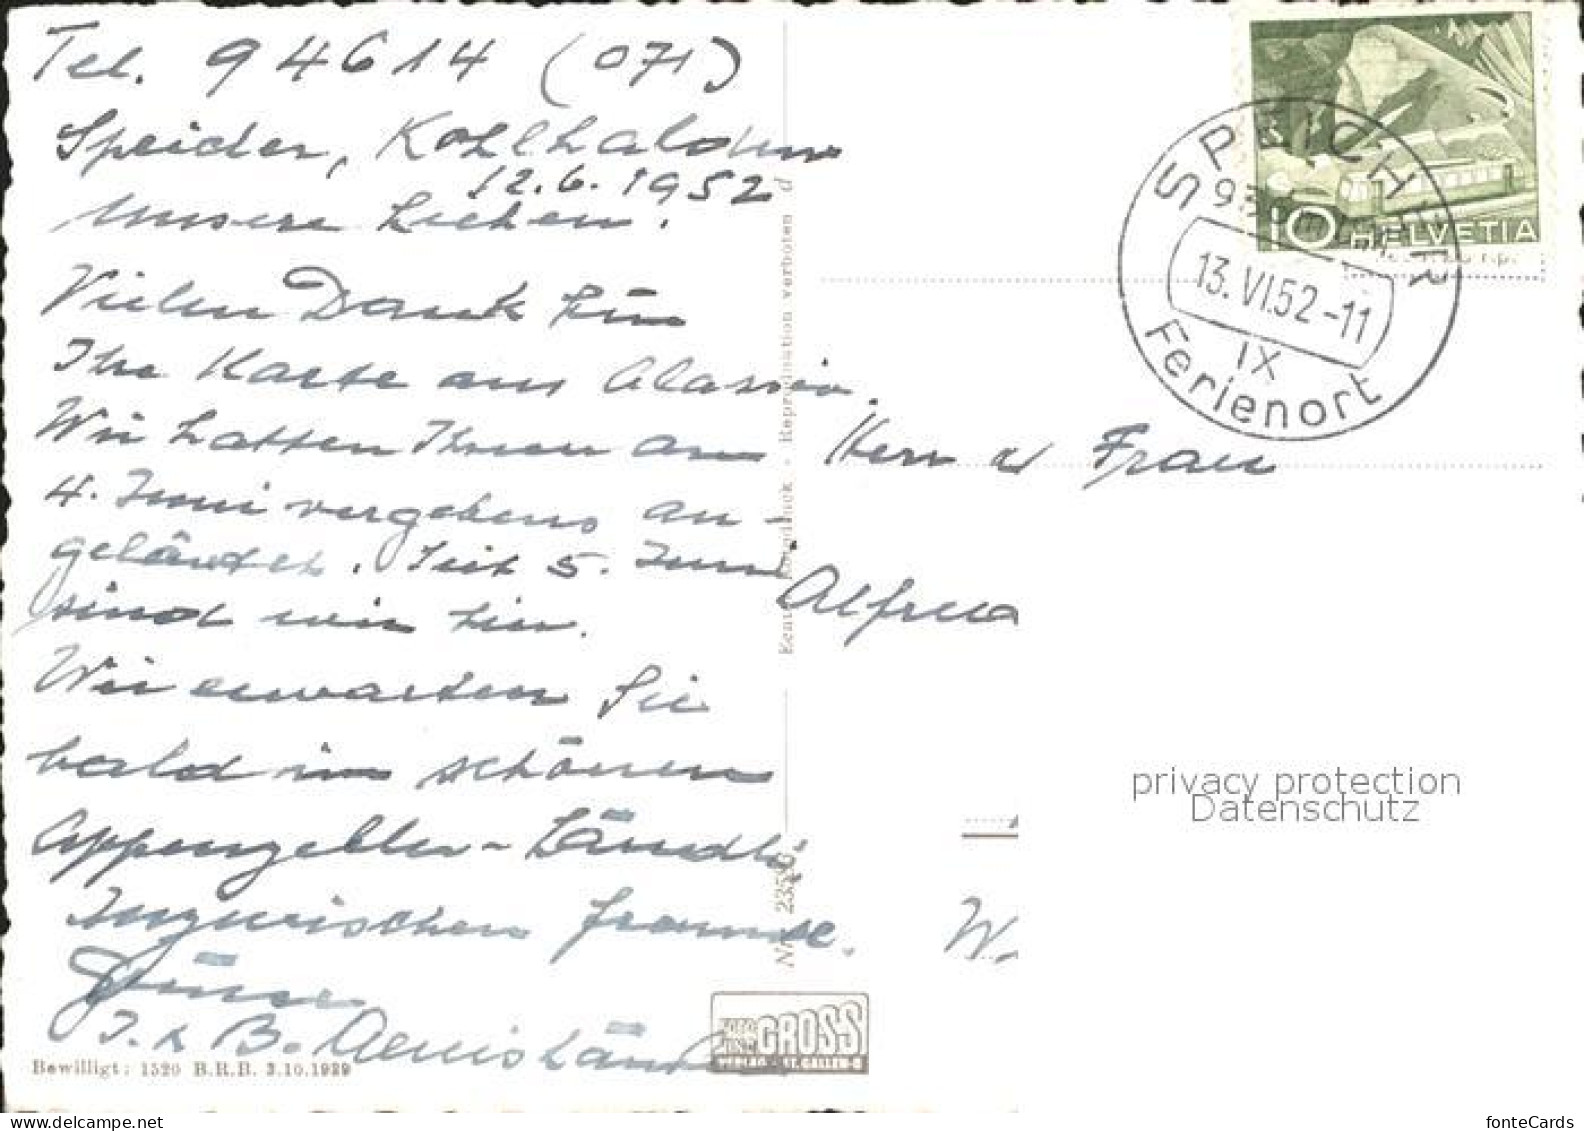 Tel. 94614 (071)
Speicher, Kohlhalden
12.6.1952
Unsere Lieben.
Vielen Dank für
Ihre Karte aus Alassio.
Wir hatten Ihnen am
4. Juni vergebens an-
geläutet. Seit 5. Juni
sind wir hier.
Wir erwarten Sie
bald im schönen
Appenzeller-Ländli
Inzwischen
J. & B.
Bewilligt: 1520 B.R.B. 3.10.1939
Reproduktion verboten
Nr. 235
GROSS
VERLAG ST. GALLEN
10 HELVETIA
SPEICHER
13.VI.52-11
IX
Ferienort
Herr u Frau
Alfred
privacy protection
Datenschutz
www.delcampe.net
fonteCards